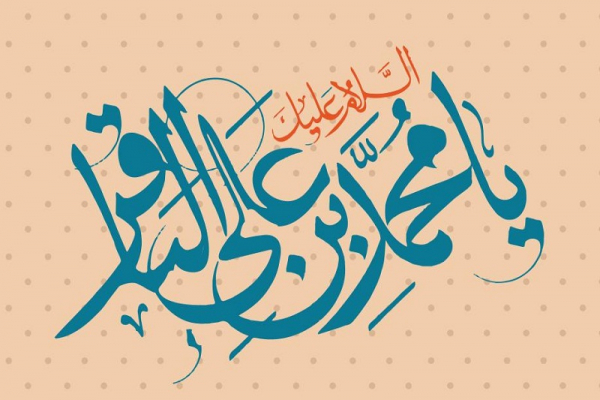 السَّلامُ عَلَيكَ
يا مُحَمَّدَ بنَ عَلِيٍّ الباقر